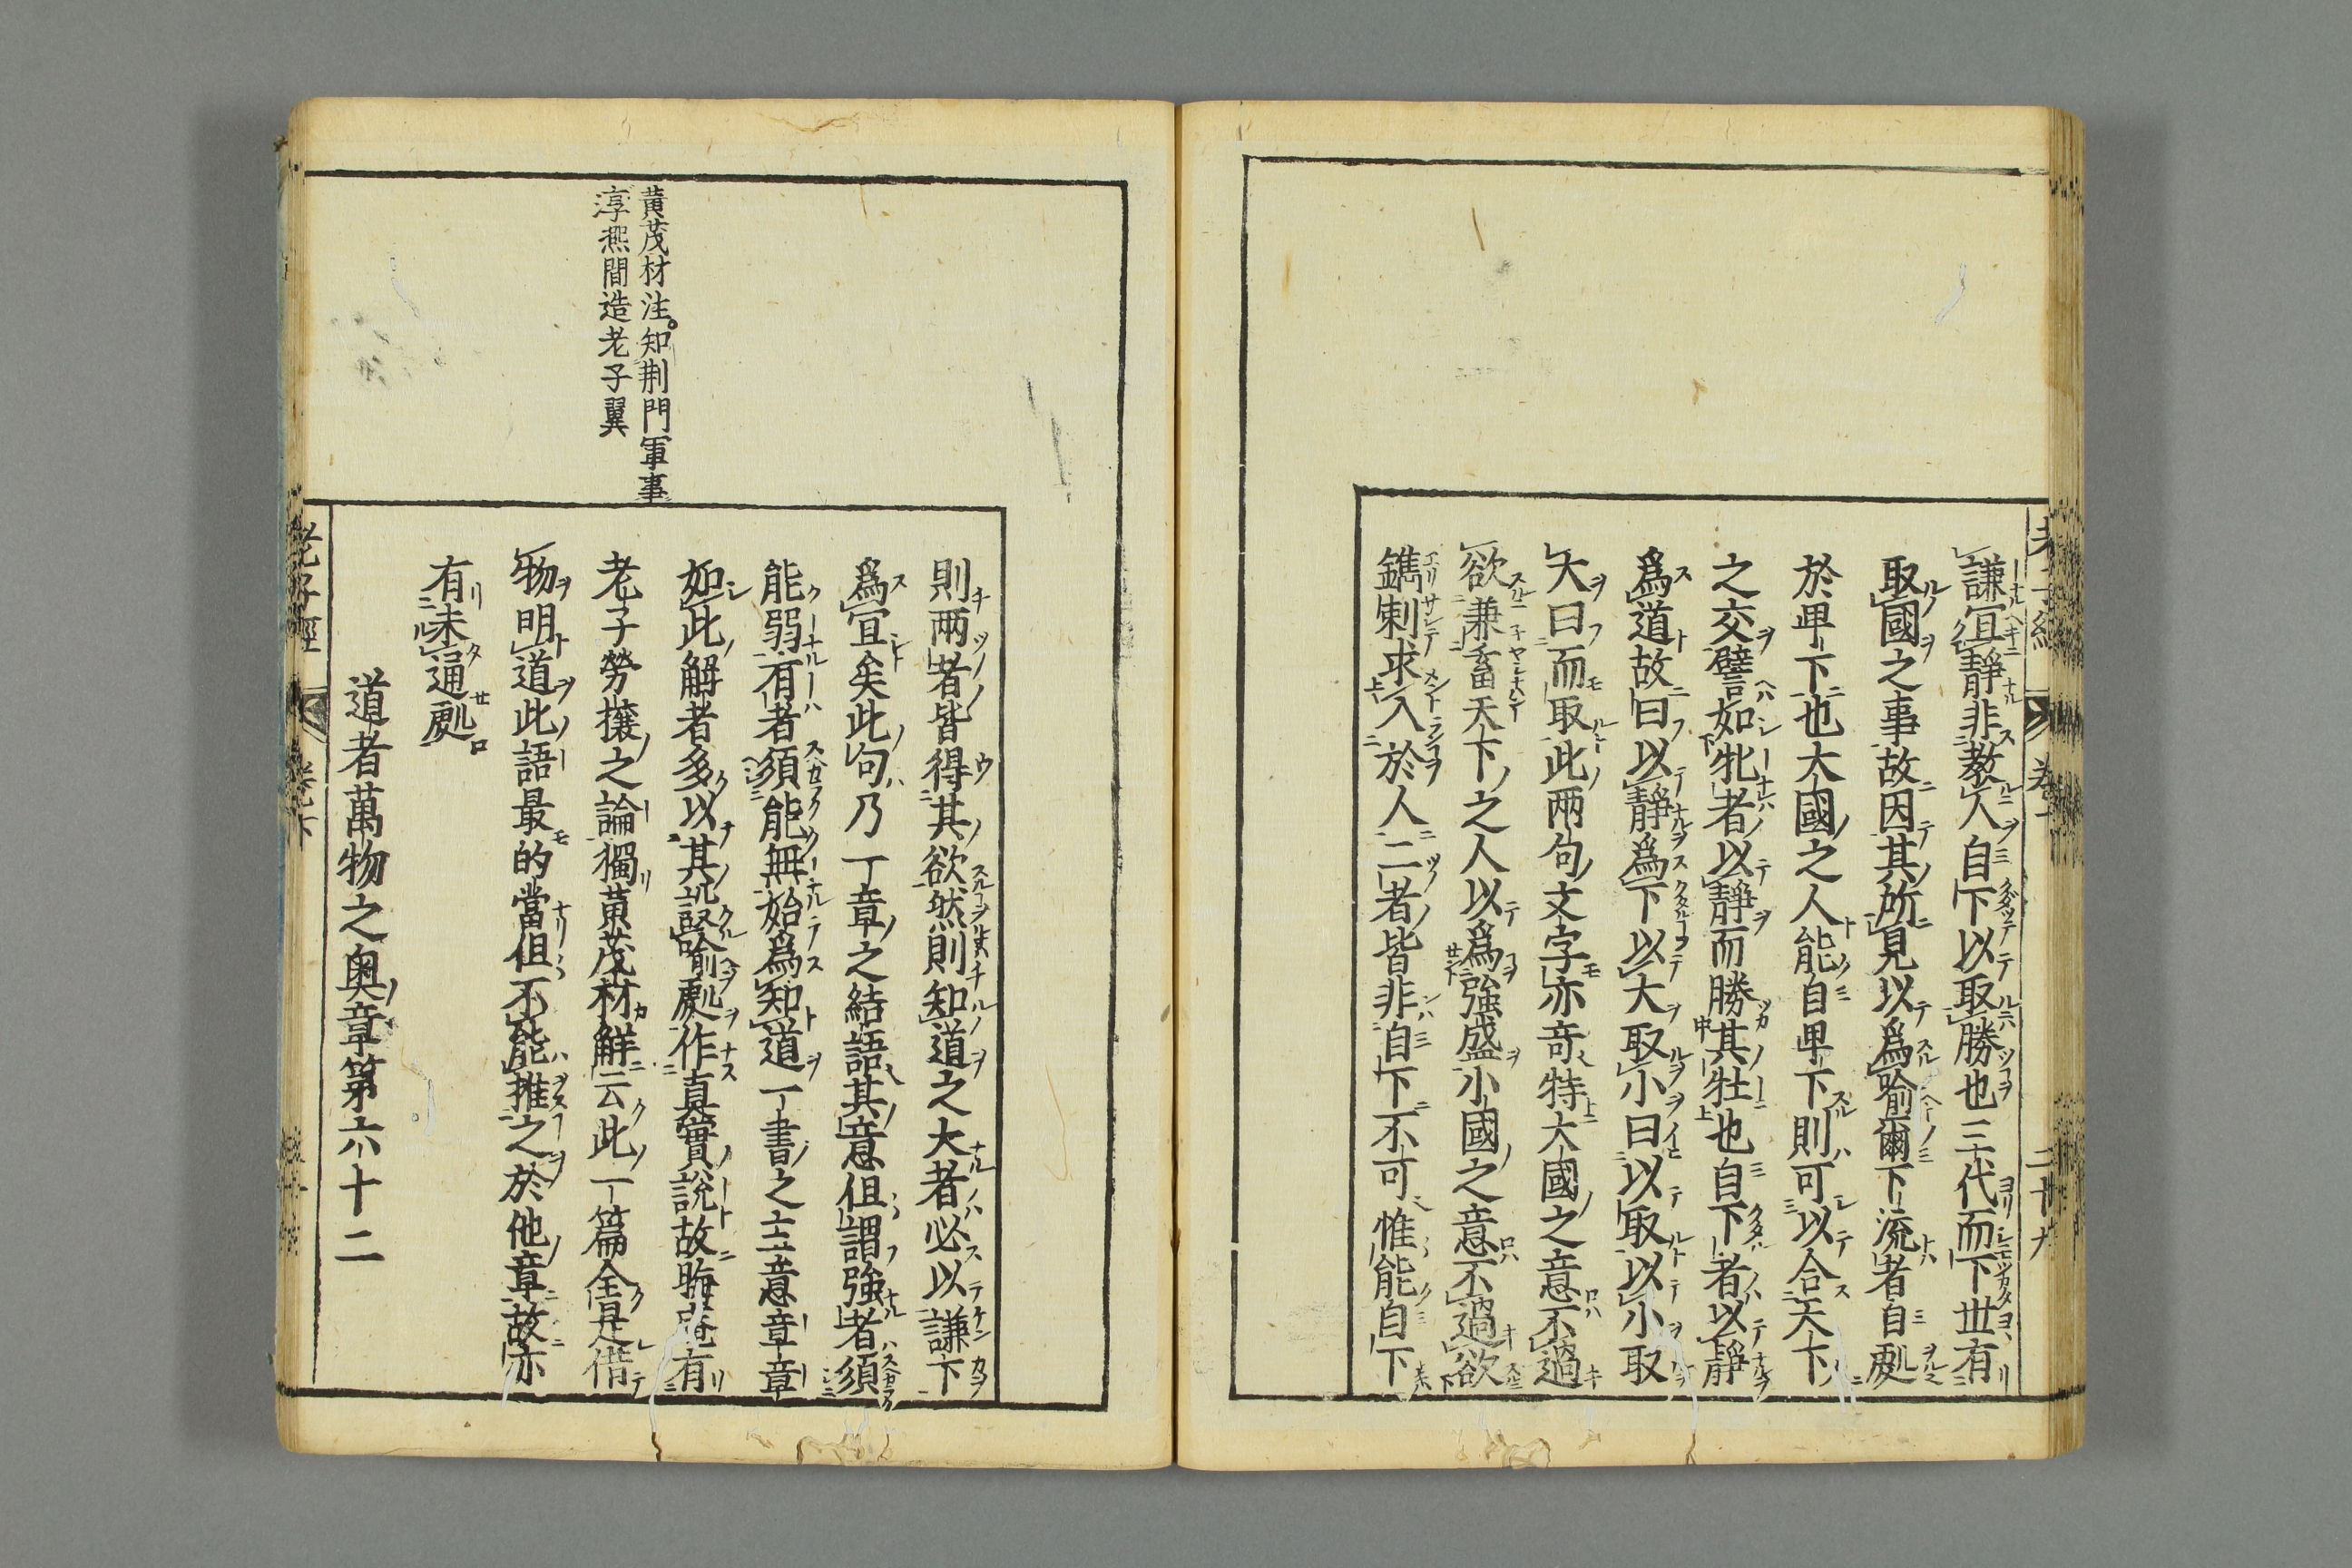 謙宜靜非教人自下以取勝也三代而下世有
取國之事故因其所見以爲喻爾下流者自處
於卑下也大國之人能自卑下則可以合天下
之交譬如牝者以靜而勝其牡也自下者以靜
爲道故曰以靜爲下以大取小曰以取以小取
大曰而取此兩句文字亦奇特大國之意不過
欲兼畜天下之人以爲強盛小國之意不過欲
鐫刺求入於人二者皆非自下不可惟能自下
則兩者皆得其欲然則知道之大者必以謙下
爲宜矣此句乃一章之結語其意但謂強者須
能弱有者須能無始爲知道一書之主意章章
如此解者多以其設喻處作真實說故晦菴有
老子勞攘之論獨黃茂材解云此一篇全是借
物明道此語最的當但不能推之於他章故亦
有未通處
道者萬物之奧章第六十二
黃茂材注。知荆門軍事
淳熙間造老子翼
老子經 卷下